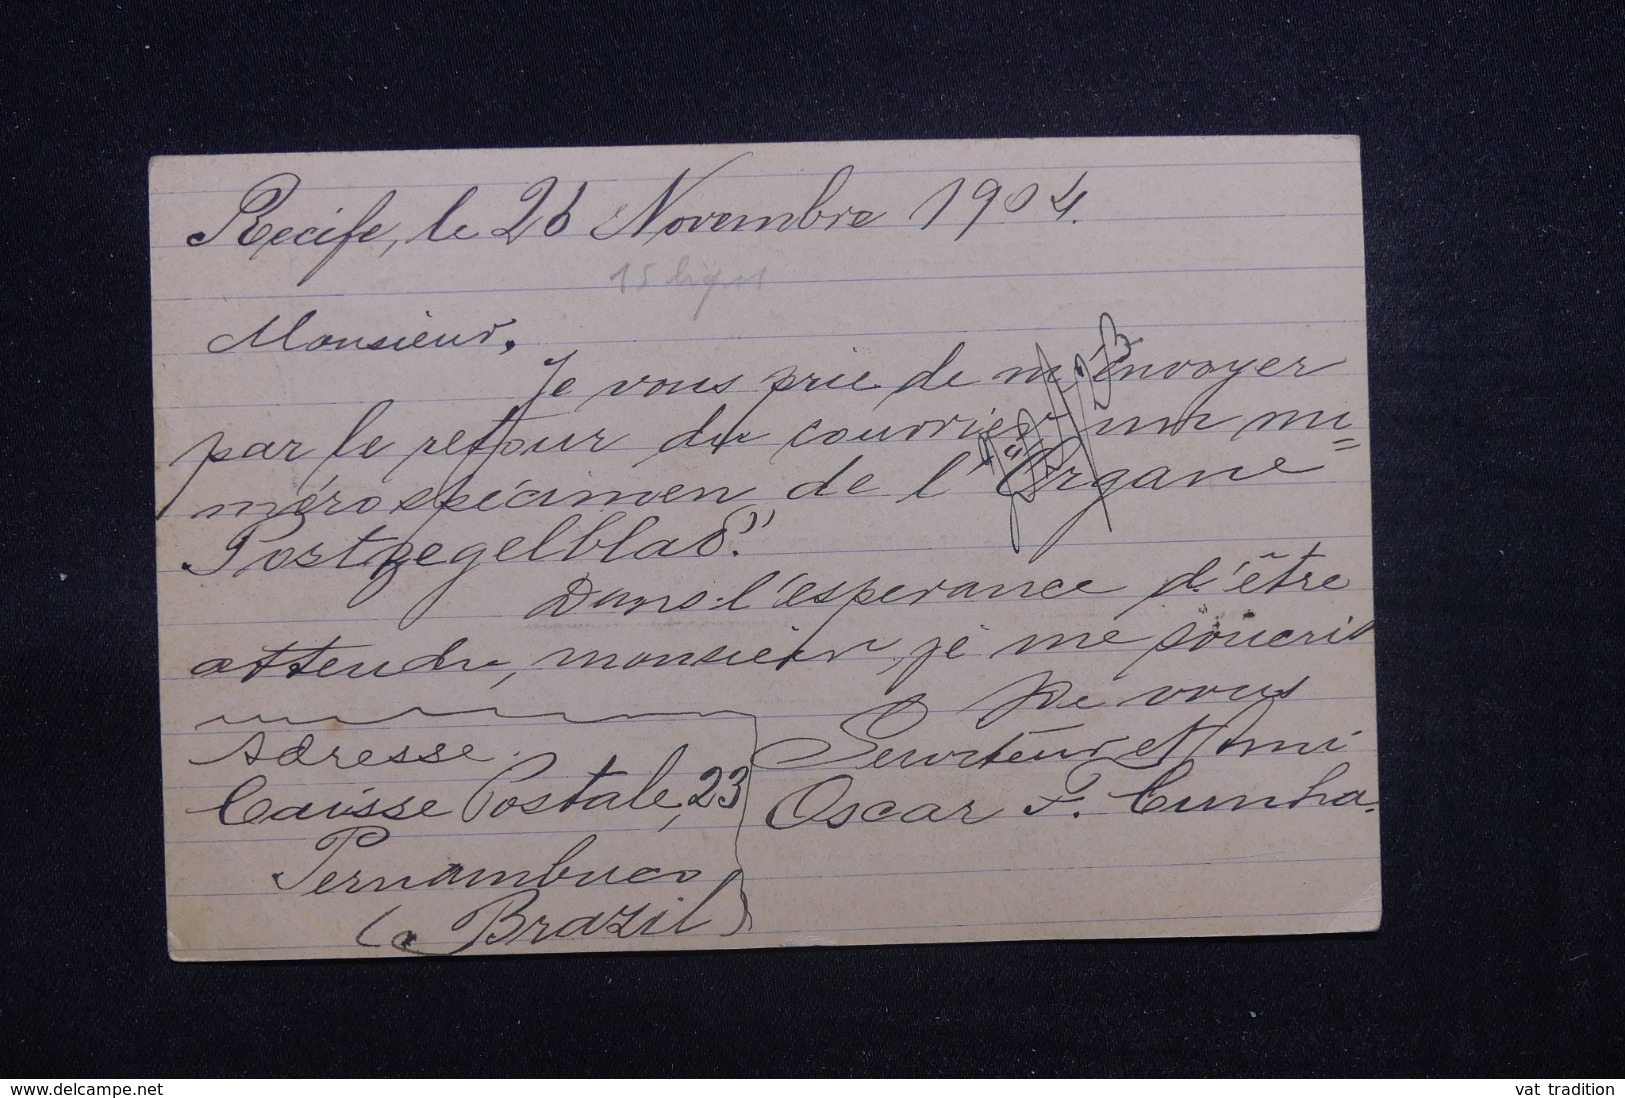 Recife, le 26 Novembre 1904.
15
Monsieur,
Je vous prie de m'envoyer
par le retour du courrier un nu=
mérospécimen de l'"Organe
Postzegelblad".
Dans l'esperance d'être
attendu, monsieur, je me soucris
De vous
Serviteur et ami
Oscar F. Cunha.
Adresse.
Caisse Postale, 23
Pernambuco
(Brazil)
www.delcampe.net
vat tradition